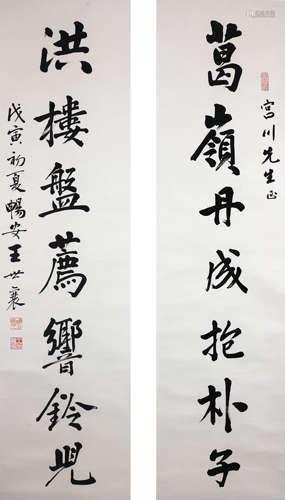 葛嶺丹成抱朴子
宮川先生正
洪樓盤薦響鈴兒
戊寅初夏暢安王世襄